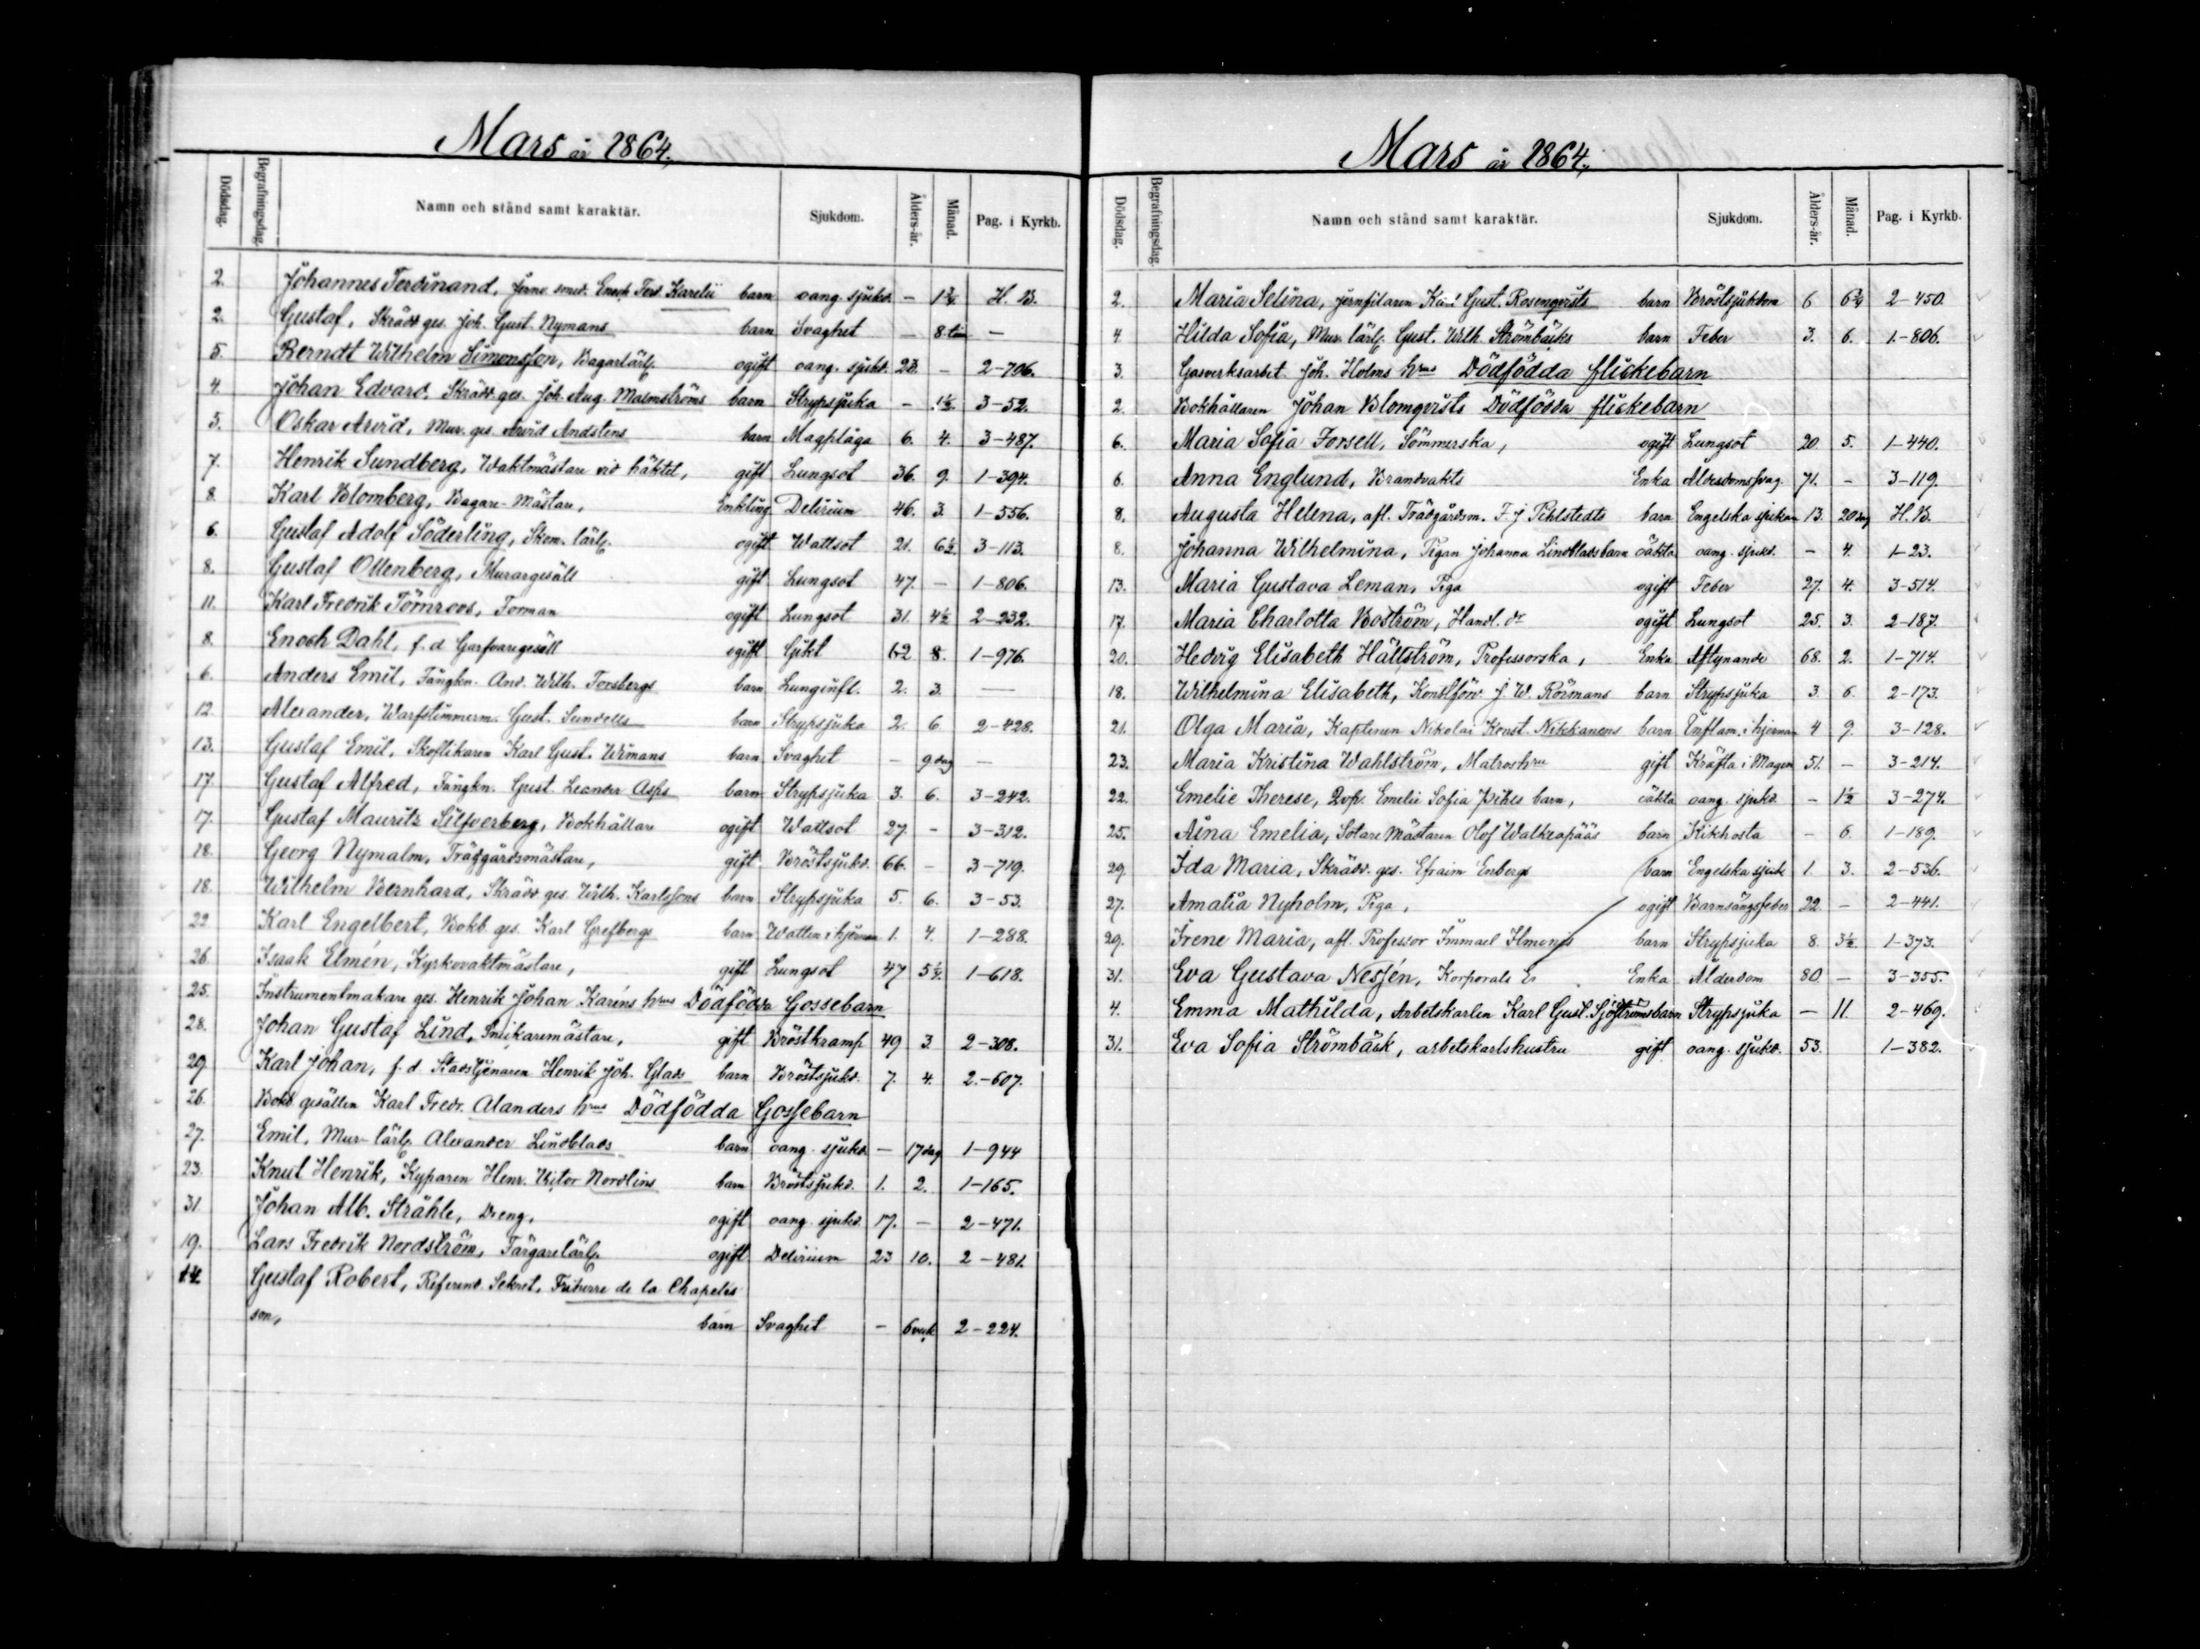 Mars år 1864.
Dödsdag. Begrafningsdag. Namn och stånd samt karaktär. Sjukdom. Ålders-år. Månad. Pag. i Kyrkb.
2. Johannes Ferdinand, Jernv. smed. Enoch Ferd. Karelii barn oang. sjukd. — 1¾ H. B.
2. Gustaf, Skrädd. ges. Joh. Gust. Nymans barn Svaghet — 8 tim —
5. Berndt Wilhelm Simonsson, Bagarlärl. ogift oang. sjukd. 23. — 2-706.
4. Johan Edvard. Skrädd. ges. Joh. Aug. Malmströms barn Strypsjuka — 1½ 3-52.
5. Oskar Arvid, Mur. ges. Arvid Andstens barn Magplåga 6. 4. 3-487.
7. Henrik Sundberg, Waktmästare vid häktet, gift Lungsot 36. 9. 1-394.
8. Karl Blomberg, Bagare-Mästare, Enkling Delirium 46. 3. 1-556.
6. Gustaf Adolf Söderling, Skom. lärl. ogift Wattsot 21. 6½ 3-113.
8. Gustaf Ollenberg, Murargesäll gift Lungsot 47. — 1-806.
11. Karl Fredrik Törnroos, Forman ogift Lungsot 31. 4½ 2-232.
8. Enoch Dahl, f. d Garfvaregesäll ogift Gikt 62 8. 1-976.
6. Anders Emil, Fängkn. And. Wilh. Forsbergs barn Lunginfl. 2. 3. —
12. Alexander, Warfstimmerm. Gust. Sundells barn Strypsjuka 2. 6. 2-428.
13. Gustaf Emil, Skoflikaren Karl Gust. Wimans barn Svaghet — 9 dag —
17. Gustaf Alfred, Fängkn. Gust. Leander Asps barn Strypsjuka 3. 6. 3-242.
17. Gustaf Mauritz Silfverberg, Bokhållare ogift Wattsot 27. - 3-312.
18. Georg Nymalm, Trädgårdsmästare, gift Bröstsjukd. 66. — 3-719.
18. Wilhelm Bernhard, Skrädd. ges. Wilh. Karlssons barn Strypsjuka 5. 6. 3-53.
22 Karl Engelbert, Bokb. ges. Karl Grefbergs barn Watten i hjernan 1. 4. 1-288.
26. Isaak Elmén, Kyrkovaktmästare, gift Lungsot 47 5½. 1-618.
25. Instrumentmakare ges. Henrik Johan Karéns hrus Dödfödda Gossebarn
28. Johan Gustaf Lind, Snickaremästare, gift Bröstkramp 49 3. 2-308.
29. Karl Johan, f. d. Stadstjenaren Henrik Joh. Glads barn Bröstsjukd. 7. 4. 2-607.
26. Bokb gesällen Karl Fredr. Alanders hrus Dödfödda Gossebarn
27. Emil, Mur-lärl. Alexander Lindblads barn oang. sjukd. — 17 dag 1-944
23. Knut Henrik, Kyparen Henr. Viktor Nordlins barn Bröstsjukd. 1. 2. 1-165.
31. Johan Alb. Stråhle, Dreng, ogift oang. sjukd. 17. — 2-471.
19. Lars Fredrik Nordström, Färgarelärl. ogift Delirium 23 10. 2-481.
14. Gustaf Robert, Referend. Sekret. Friherre de la Chapeles
son, barn Svaghet - 6 veck 2-224.
Mars år 1864.
Dödsdag. Begrafningsdag. Namn och stånd samt karaktär. Sjukdom. Ålders-år. Månad. Pag. i Kyrkb.
2. Maria Selina, jernfilaren Karl Gust. Rosenqvists barn Bröstsjukdom 6 6¾ 2-450.
4. Hilda Sofia, Mur. lärl. Gust. Wilh. Strömbäcks barn Feber 3. 6. 1-806.
3. Gasverksarbet. Joh. Holms hrus Dödfödda flickebarn
2. Bokhållaren Johan Blomqvists Dödfödda flickebarn
6. Maria Sofia Forsell, Sömmerska, ogift Lungsot 20. 5. 1-440.
6. Anna Englund, Brandvakts Enka Ålderdomssvag. 71. - 3-119.
8. Augusta Helena, afl. Trädgårdsm. F. J Pihlstedts barn Engelska sjukan 13. 20 dag H. B.
8. Johanna Wilhelmina, Pigan Johanna Lindblads barn oäkta oang. sjukd. — 4. 1-23.
13. Maria Gustava Leman, Piga ogift Feber 27. 4. 3-514.
17. Maria Charlotta Boström, Handl. dr ogift Lungsot 25. 3. 2-187.
20. Hedvig Elisabeth Hällström, Professorska, Enka Aftynande 68. 2. 1-714.
18. Wilhelmina Elisabeth, Konstförv J. W. Römans barn Strypsjuka 3. 6. 2-173.
21. Olga Maria, Kaptenen Nikolai Konst. Nikkanens barn Inflam. i hjernan 4 9. 3-128.
23. Maria Kristina Wahlström, Matroshru gift Kräfta i Magen 51. — 3-214.
22. Emelie Therese, Qvp. Emelie Sofia Pihls barn, oäkta oang. sjukd. - 1½ 3-274.
25. Aina Emelia, Sotare Mästaren Olof Walkeapääs barn Kikhosta — 6. 1-189.
29. Ida Maria, Skrädd. ges. Efraim Enbergs barn Engelska sjuk 1. 3. 2-536.
27. Amalia Nyholm, Piga, ogift Barnsängsfeber 22. — 2-441.
29. Irene Maria, afl. Professor Immael Ilmonis barn Strypsjuka 8. 3½. 1-373.
31. Eva Gustava Nessén, Korporals E Enka Ålderdom 80. — 3-355.
4. Emma Mathilda, Arbetskarlen Karl Gust. Sjöströms barn Strypsjuka — 11. 2-469.
31. Eva Sofia Strömbäck, arbetskarlshustru gift oang. sjukd. 53. 1-382.